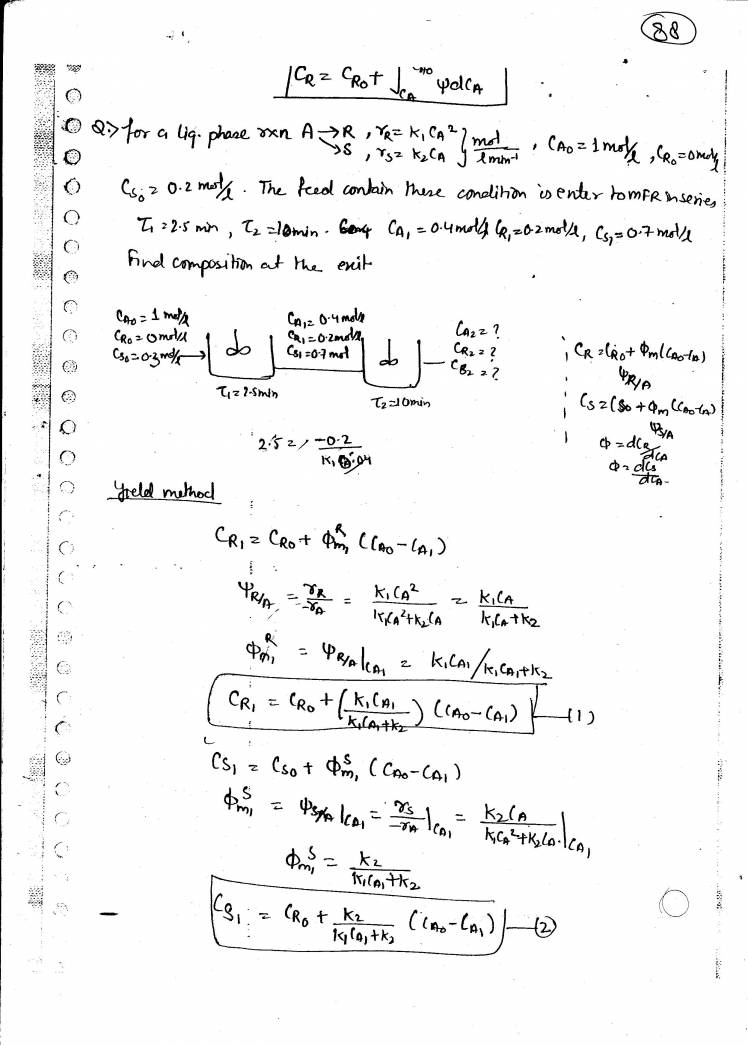 88
C_R = C_R0 + ∫_CA ψ dC_A
Q.> for a liq. phase rxn A → R , r_R = K₁C_A² } mol / l min⁻¹ , C_A0 = 1 mol/l , C_R0 = 0 mol/l
↘ S , r_S = K₂C_A
C_S0 = 0.2 mol/l . The feed contain these condition is enter to MFR in series
τ₁ = 2.5 min , τ₂ = 10 min . C_A1 = 0.4 mol/l C_R1 = 0.2 mol/l , C_S1 = 0.7 mol/l
Find composition at the exit
C_A0 = 1 mol/l
C_R0 = 0 mol/l
C_S0 = 0.3 mol/l
τ₁ = 2.5 min
C_A1 = 0.4 mol/l
C_R1 = 0.2 mol/l
C_S1 = 0.7 mol
τ₂ = 10 min
C_A2 = ?
C_R2 = ?
C_B2 = ?
C_R = C_R0 + Φm (C_A0 - C_A)
ψ_R/A
C_S = C_S0 + Φm (C_A0 - C_A)
ψ_S/A
Φ = dC_R/dC_A
Φ = dC_S/dC_A
2.5 = -0.2 / K₁ 0.04
Yield method
C_R1 = C_R0 + Φ^R_m1 (C_A0 - C_A1)
ψ_R/A = r_R/-r_A = K₁C_A² / K₁C_A² + K₂C_A = K₁C_A / K₁C_A + K₂
Φ^R_m1 = ψ_R/A |C_A1 = K₁C_A1 / K₁C_A1 + K₂
C_R1 = C_R0 + (K₁C_A1 / K₁C_A1 + K₂) (C_A0 - C_A1) —(1)
C_S1 = C_S0 + Φ^S_m1 (C_A0 - C_A1)
Φ^S_m1 = ψ_S/A |C_A1 = r_S/-r_A |C_A1 = K₂C_A / K₁C_A² + K₂C_A. |C_A1
Φ^S_m1 = K₂ / K₁C_A1 + K₂
C_S1 = C_R0 + K₂ / K₁C_A1 + K₂ (C_A0 - C_A1) —(2)